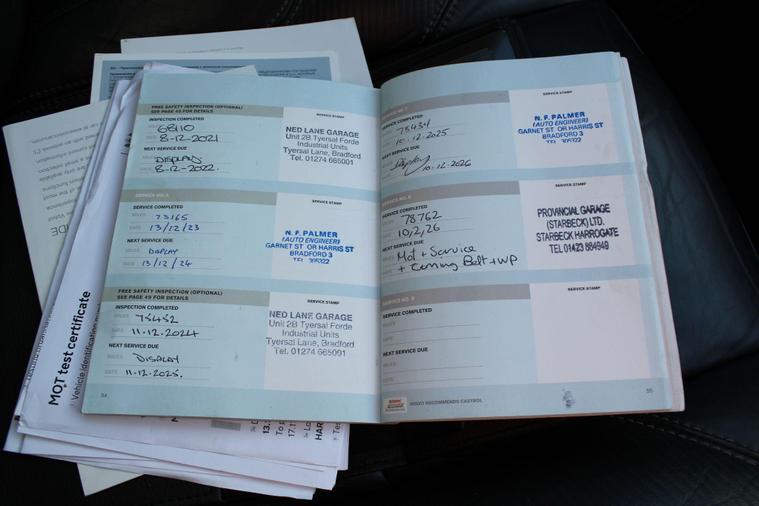 FREE SAFETY INSPECTION (OPTIONAL)
SEE PAGE 49 FOR DETAILS
SERVICE STAMP
INSPECTION COMPLETED
68110
8-12-2021
NEXT SERVICE DUE
DISPLAY
8-12-2022.
NED LANE GARAGE
Unit 2B Tyersal Forde
Industrial Units
Tyersal Lane, Bradford
Tel. 01274 665001
SERVICE STAMP
SERVICE COMPLETED
MILES 73165
DATE 13/12/23
NEXT SERVICE DUE
MILES DISPLAY
DATE 13/12/24
N. F. PALMER
(AUTO ENGINEER)
GARNET ST OR HARRIS ST
BRADFORD 3
FREE SAFETY INSPECTION (OPTIONAL)
SEE PAGE 49 FOR DETAILS
SERVICE STAMP
INSPECTION COMPLETED
MILES 75452
DATE 11.12.2024
NEXT SERVICE DUE
MILES DISPLAY
DATE 11-12-2025.
NED LANE GARAGE
Unit 2B Tyersal Forde
Industrial Units
Tyersal Lane, Bradford
Tel. 01274 665001
54
SERVICE STAMP
COMPLETED
78434
10.12.2025
NEXT SERVICE DUE
10.12.2026
N. F. PALMER
(AUTO ENGINEER)
GARNET ST OR HARRIS ST
BRADFORD 3
SERVICE STAMP
SERVICE COMPLETED
78762
10,2,26
NEXT SERVICE DUE
Mot + Service
+ Camming Belt + WP
PROVINCIAL GARAGE
(STARBECK) LTD.
STARBECK HARROGATE
SERVICE NO. 9
SERVICE STAMP
SERVICE COMPLETED
MILES
DATE
NEXT SERVICE DUE
MILES
DATE
VOLVO RECOMMENDS CASTROL
55
MOT test certificate